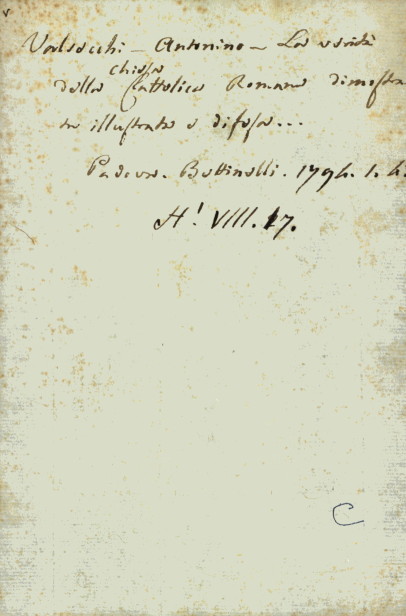 Valsecchi - Antonino - La verità
chiesa
della Cattolica Romana dimostra
ta illustrata e difesa...
Padova. Bettinelli. 1794. 1. 4.
H! VIII. 17.
C